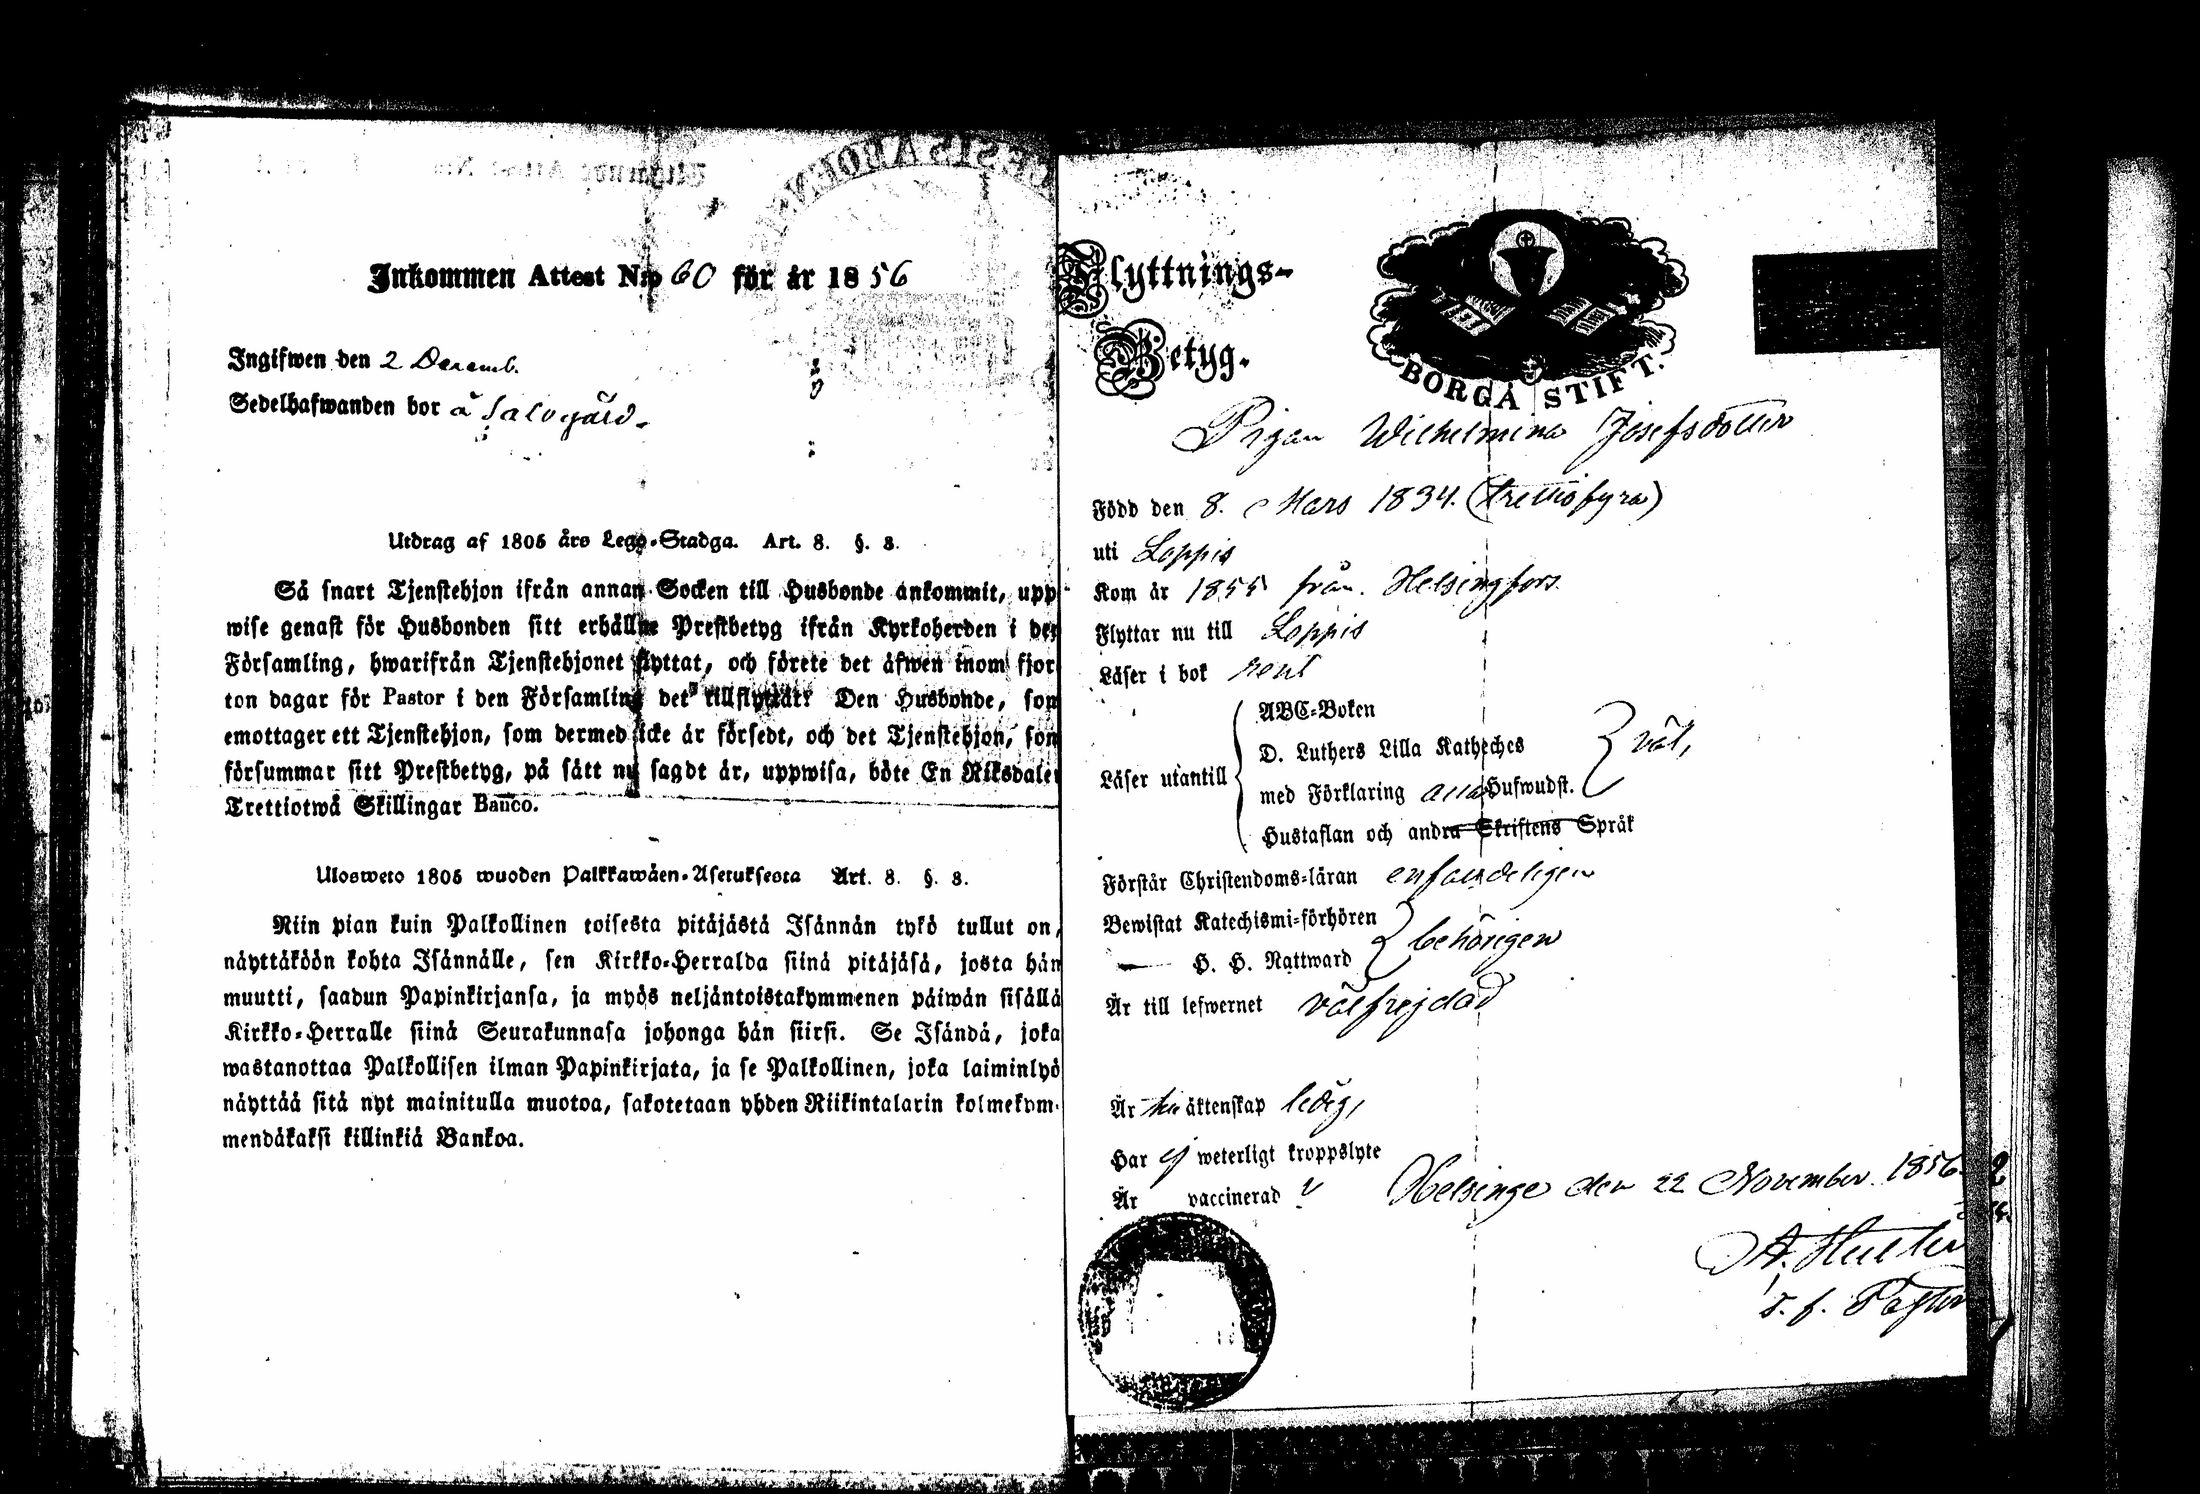 Inkommen Attest N:o 60 för år 1856
Ingifwen den 2 Decemb.
Sedelhafwanden bor å
Utdrag af 1805 års Lego-Stadga. Art. 8. §. 8.
Så snart Tjenstehjon ifrån annan Socken till Husbonde ankommit, upp-
wise genast för Husbonden sitt erhållne Prestbetyg ifrån Kyrkoherden i den
Församling, hwarifrån Tjenstehjonet flyttat, och förete det äfwen inom fjor-
ton dagar för Pastor i den Församling det tillflyttat: Den Husbonde, som
emottager ett Tjenstehjon, som dermed icke är försedt, och det Tjenstehjon, som
försummar sitt Prestbetyg, på sätt nu sagdt är, uppwisa, böte En Riksdaler
Trettiotwå Skillingar Banco.
Ulosweto 1805 wuoden Palkkawäen-Asetuksesta Art. 8. §. 8.
Niin pian kuin Palkollinen toisesta pitäjästä Isännän tykö tullut on,
näyttäköön kohta Isännälle, sen Kirkko-Herralda siinä pitäjäsä, josta hän
muutti, saadun Papinkirjansa, ja myös neljäntoistakymmenen päiwän sisällä
Kirkko-Herralle siinä Seurakunnasa johonga hän siirsi. Se Isändä, joka
wastanottaa Palkollisen ilman Papinkirjata, ja se Palkollinen, joka laiminlyö
näyttää sitä nyt mainitulla muotoa, sakotetaan yhden Riikintalarin kolmekym-
mendäkaksi killinkiä Bankoa.
Flyttnings-
Betyg.
BORGÅ STIFT.
Pigan Wilhelmina Josefsdotter
Född den 8. Mars 1834. (trettiofyra)
uti Loppis
Kom år 1855 från Helsingfors.
Flyttar nu till Loppis
Läser i bok rent
Läser utantill
ABC-Boken
D. Luthers Lilla Katheches
med Förklaring alla Hufwudst.
Hustaflan och andra Skriftens Språk
väl,
Förstår Christendoms-läran enfaldeligen
Bewistat Katechismi-förhören
H. H. Nattward
behörigen
Är till lefwernet välfrejdad
Är till äktenskap ledig,
Har ej weterligt kroppslyte
Är vaccinerad
Helsinge den 22 November 1856.
t. f. Pastor